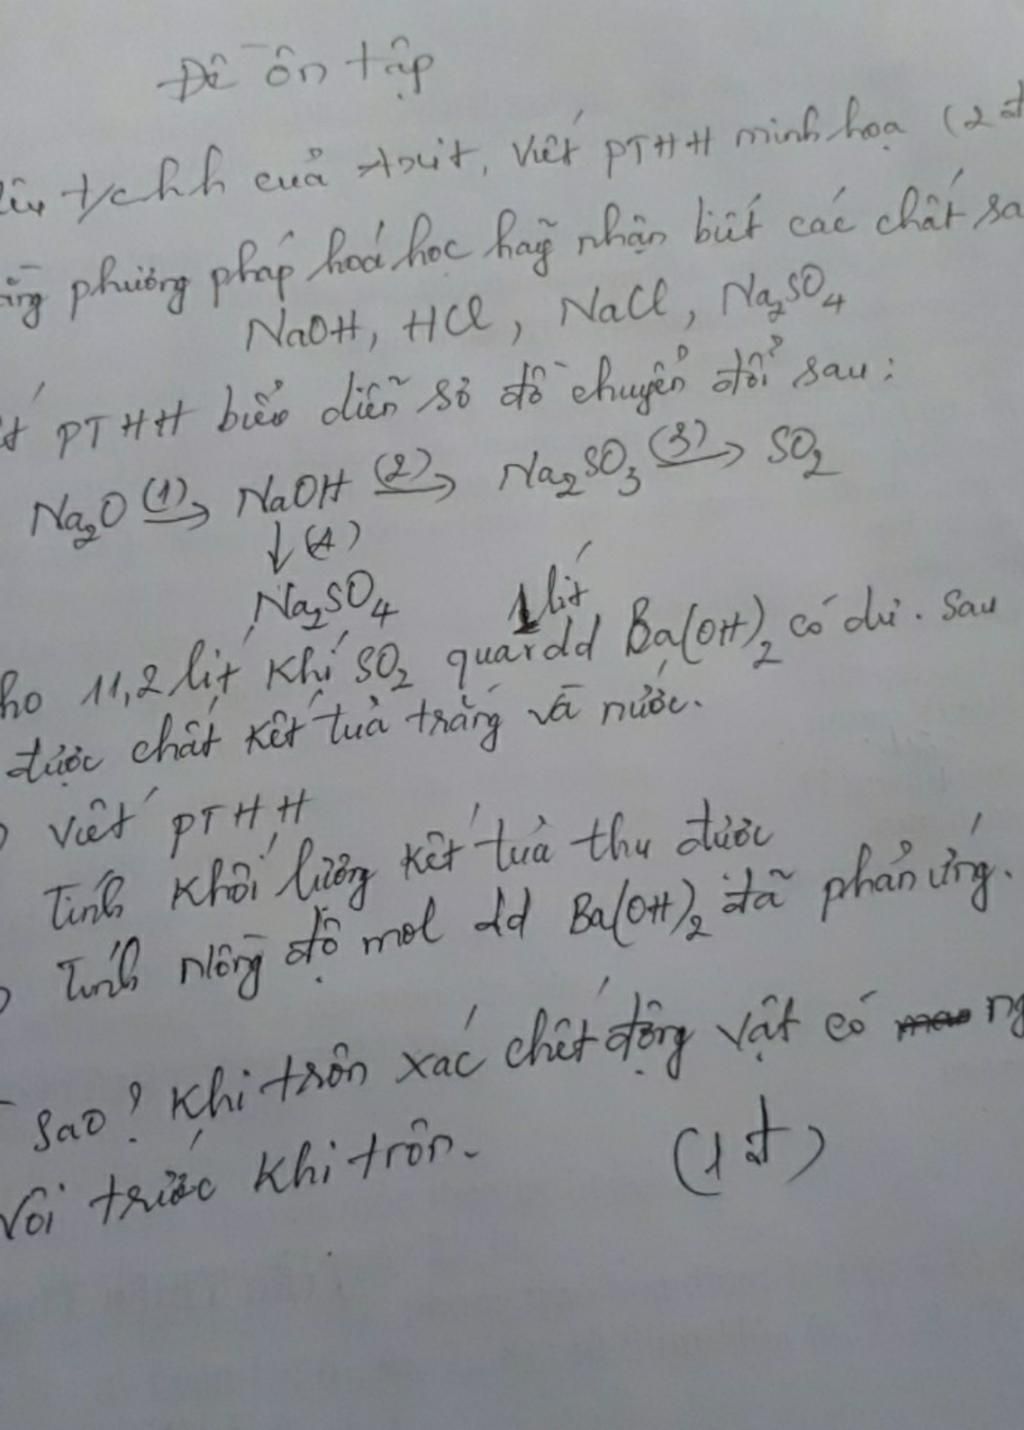 Đề ôn tập
t/chh của Axit, Viết PTHH minh hoạ (2đ
phương pháp hoá học hãy nhận biết các chất sa
NaOH, HCl, NaCl, Na₂SO₄
PTHH biểu diễn sơ đồ chuyển đổi sau:
Na₂O (1)→ NaOH (2)→ Na₂SO₃ (3)→ SO₂
↓(4)
Na₂SO₄
1 lít
ho 11,2 lít khí SO₂ qua dd Ba(OH)₂ có dư. Sau
được chất kết tuả trắng và nước.
Viết PTHH
Tính khối lượng kết tuả thu được
Tính nồng độ mol dd Ba(OH)₂ đã phản ứng.
Sao? Khi trôn xác chết động vật có ng
Vôi trước khi trôn.
(1đ)